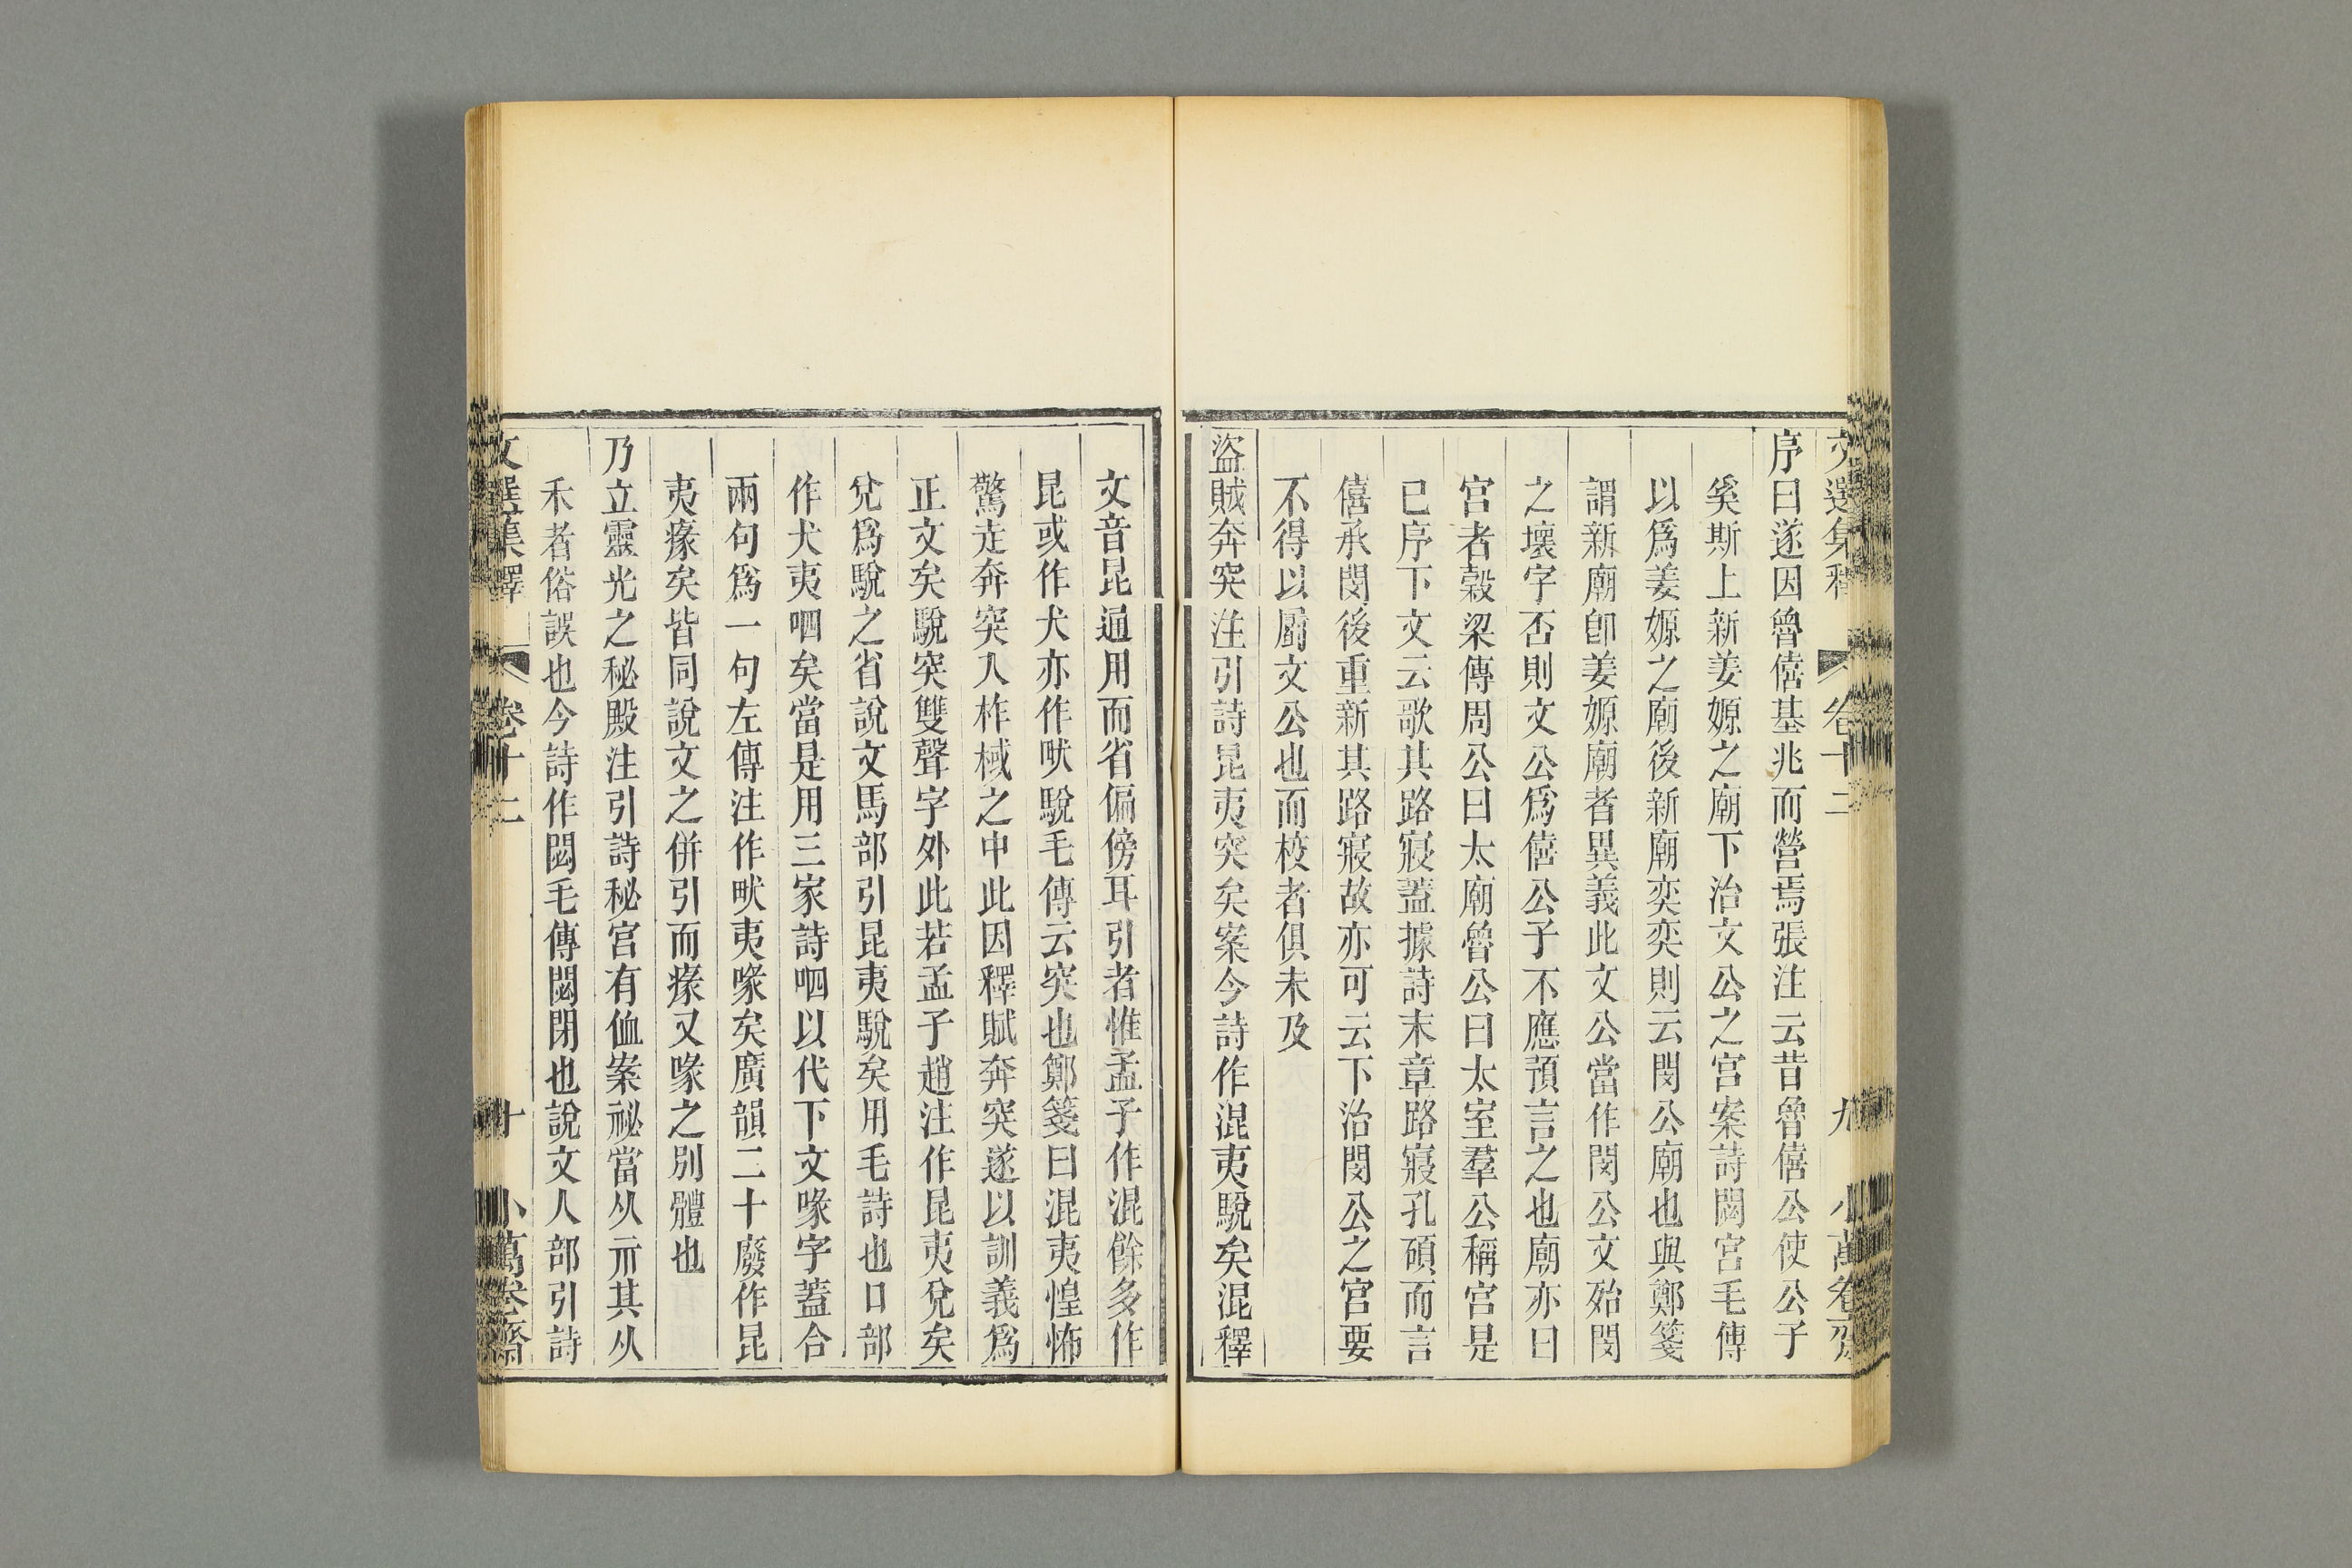 文選集釋 卷十二 九 小萬卷齋
序曰遂因魯僖基兆而營焉張注云昔魯僖公使公子
奚斯上新姜嫄之廟下治文公之宮案詩閟宮毛傳
以爲姜嫄之廟後新廟奕奕則云閔公廟也與鄭箋
謂新廟卽姜嫄廟者異義此文公當作閔公文殆閔
之壞字否則文公爲僖公子不應預言之也廟亦曰
宮者穀梁傳周公曰太廟魯公曰太室羣公稱宮是
已序下文云歌其路寢蓋據詩末章路寢孔碩而言
僖承閔後重新其路寢故亦可云下治閔公之宮要
不得以屬文公也而校者俱未及
盜賊奔突注引詩昆夷突矣案今詩作混夷駾矣混釋
文音昆通用而省偏傍耳引者惟孟子作混餘多作
昆或作犬亦作畎駾毛傳云突也鄭箋曰混夷惶怖
驚走奔突入柞棫之中此因釋賦奔突遂以訓義爲
正文矣駾突雙聲字外此若孟子趙注作昆夷兌矣
兌爲駾之省說文馬部引昆夷駾矣用毛詩也口部
作犬夷呬矣當是用三家詩呬以代下文喙字蓋合
兩句爲一句左傳注作畎夷喙矣廣韻二十廢作昆
夷瘃矣皆同說文之併引而瘃又喙之別體也
乃立靈光之秘殿注引詩秘宮有侐案祕當从示其从
禾者俗誤也今詩作閟毛傳閟閉也說文人部引詩
文選集釋 卷十二 十 小萬卷齋